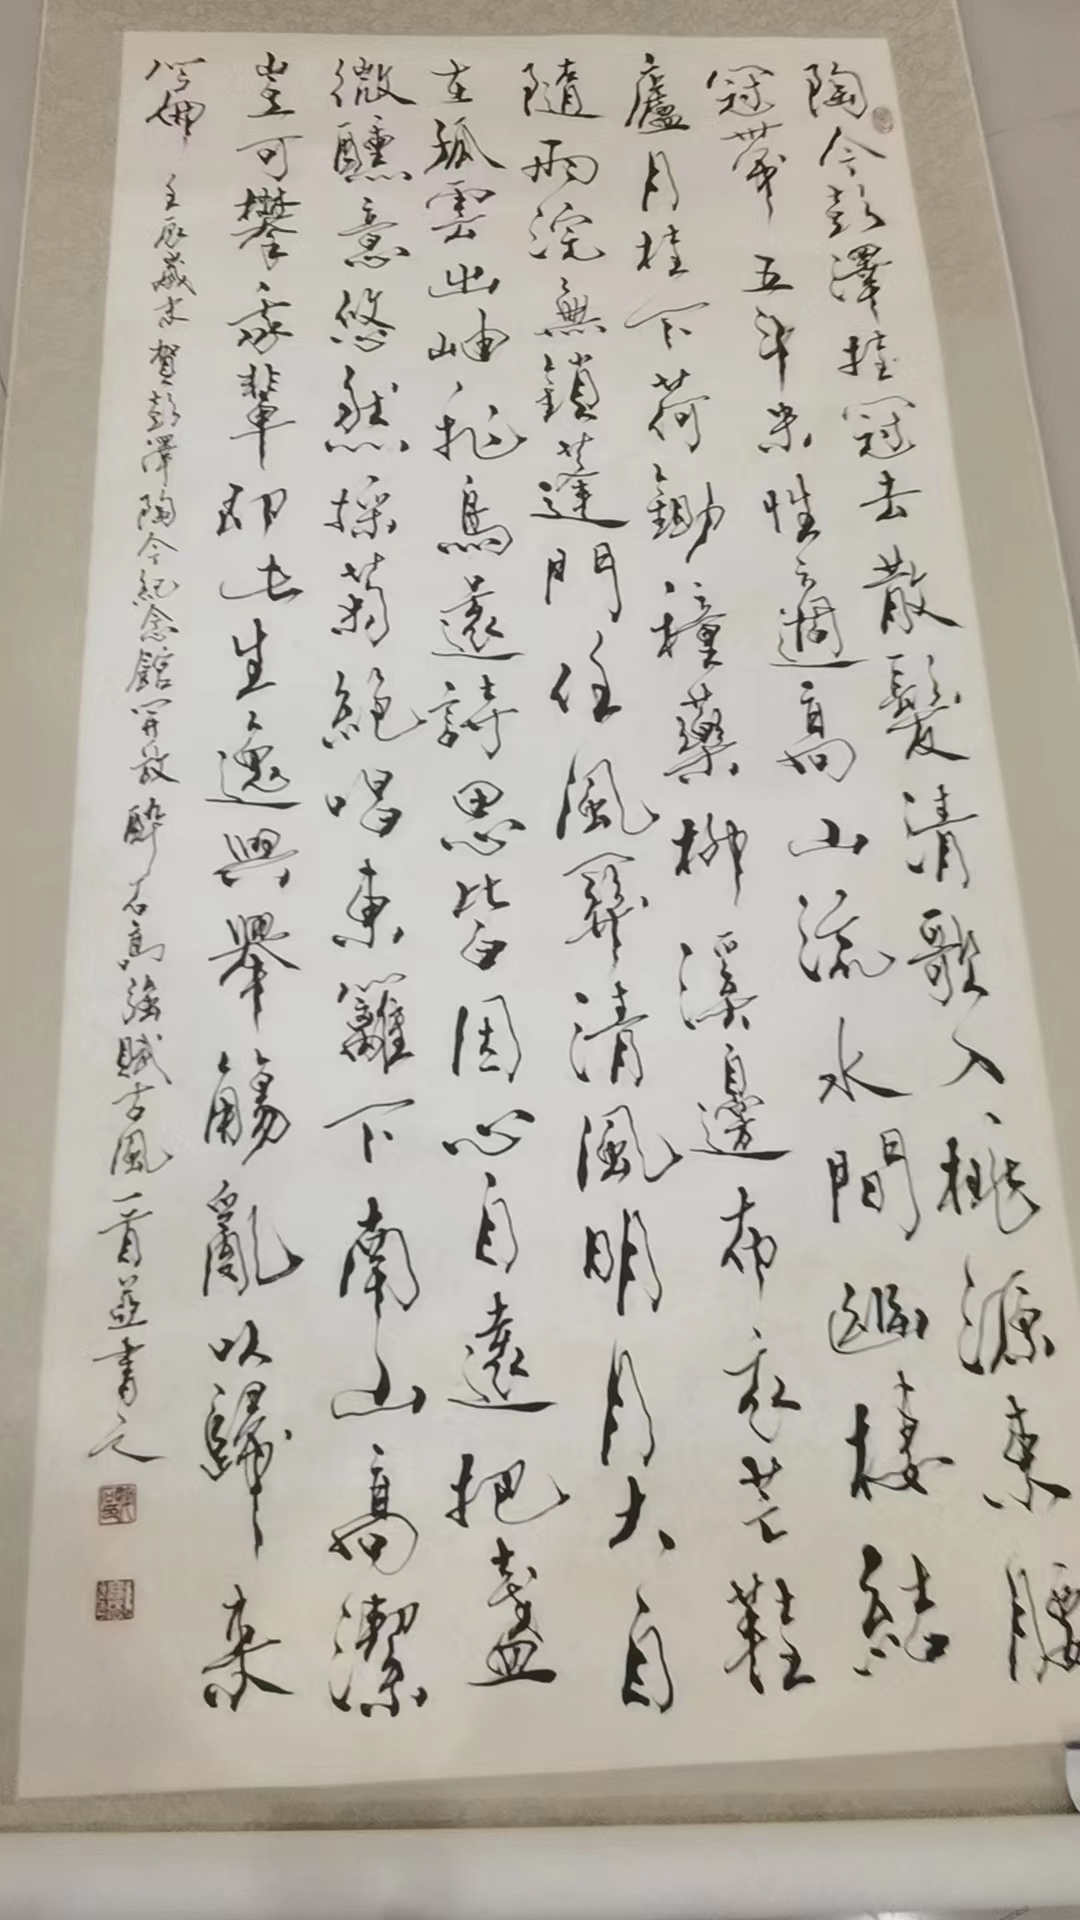 陶令彭澤掛冠去散髮清歌入桃源素腰
冠帶五斗米性高山流水間幽棲結
廬月桂下荷鋤種藥柳溪邊布衣芒鞋
隨雨浣無鎖蓬門任風羿清風明月大自
在孤雲出岫飛鳥還詩思皆因心自遠把盞
微醺意悠然採菊絕唱東籬下南山高潔
豈可攀我輩即此生逸興舉觴亂以歸來
壬辰歲末賀彭澤陶令紀念館開放醉石高強賦古風一首並書之